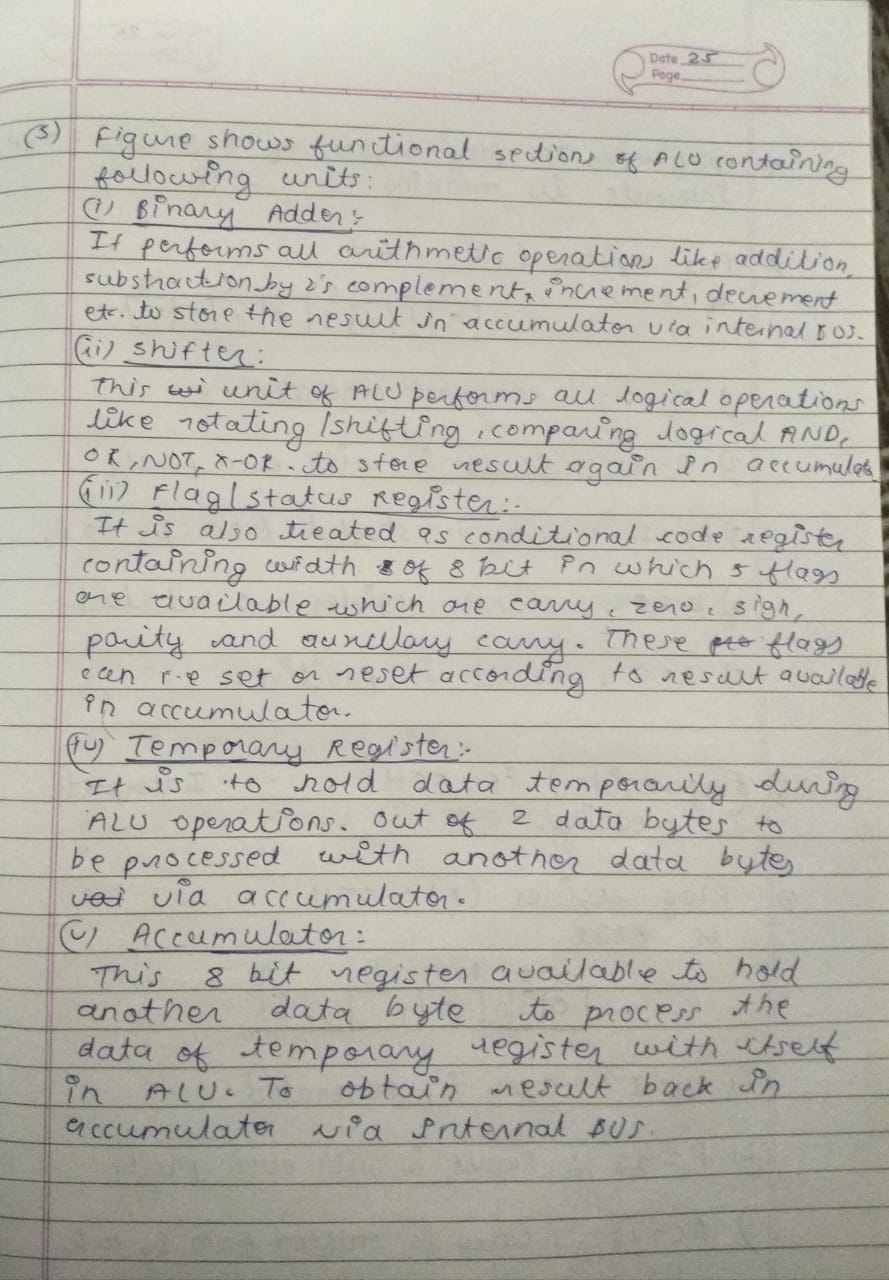 Date 25
Page
(3) Figure shows functional sections of ALU containing
following units:
(i) Binary Adder:-
It performs all arithmetic operations like addition,
substraction by 2's complement, increment, decrement
etc. to store the result in accumulator via internal BUS.
(ii) Shifter:
This unit of ALU performs all logical operations
like rotating /shifting, comparing logical AND,
OR, NOT, X-OR. to store result again in accumulator
(iii) Flag/Status Register:-
It is also treated as conditional code register
containing width of 8 bit in which 5 flags
are available which are carry, zero, sign,
parity and auxillary carry. These flags
can r.e set or reset according to result available
in accumulator.
(iv) Temporary Register:-
It is to hold data temporarily during
ALU operations. Out of 2 data bytes to
be processed with another data bytes
via accumulator.
(v) Accumulator:
This 8 bit register available to hold
another data byte to process the
data of temporary register with itself
in ALU. To obtain result back in
accumulator via Internal BUS.